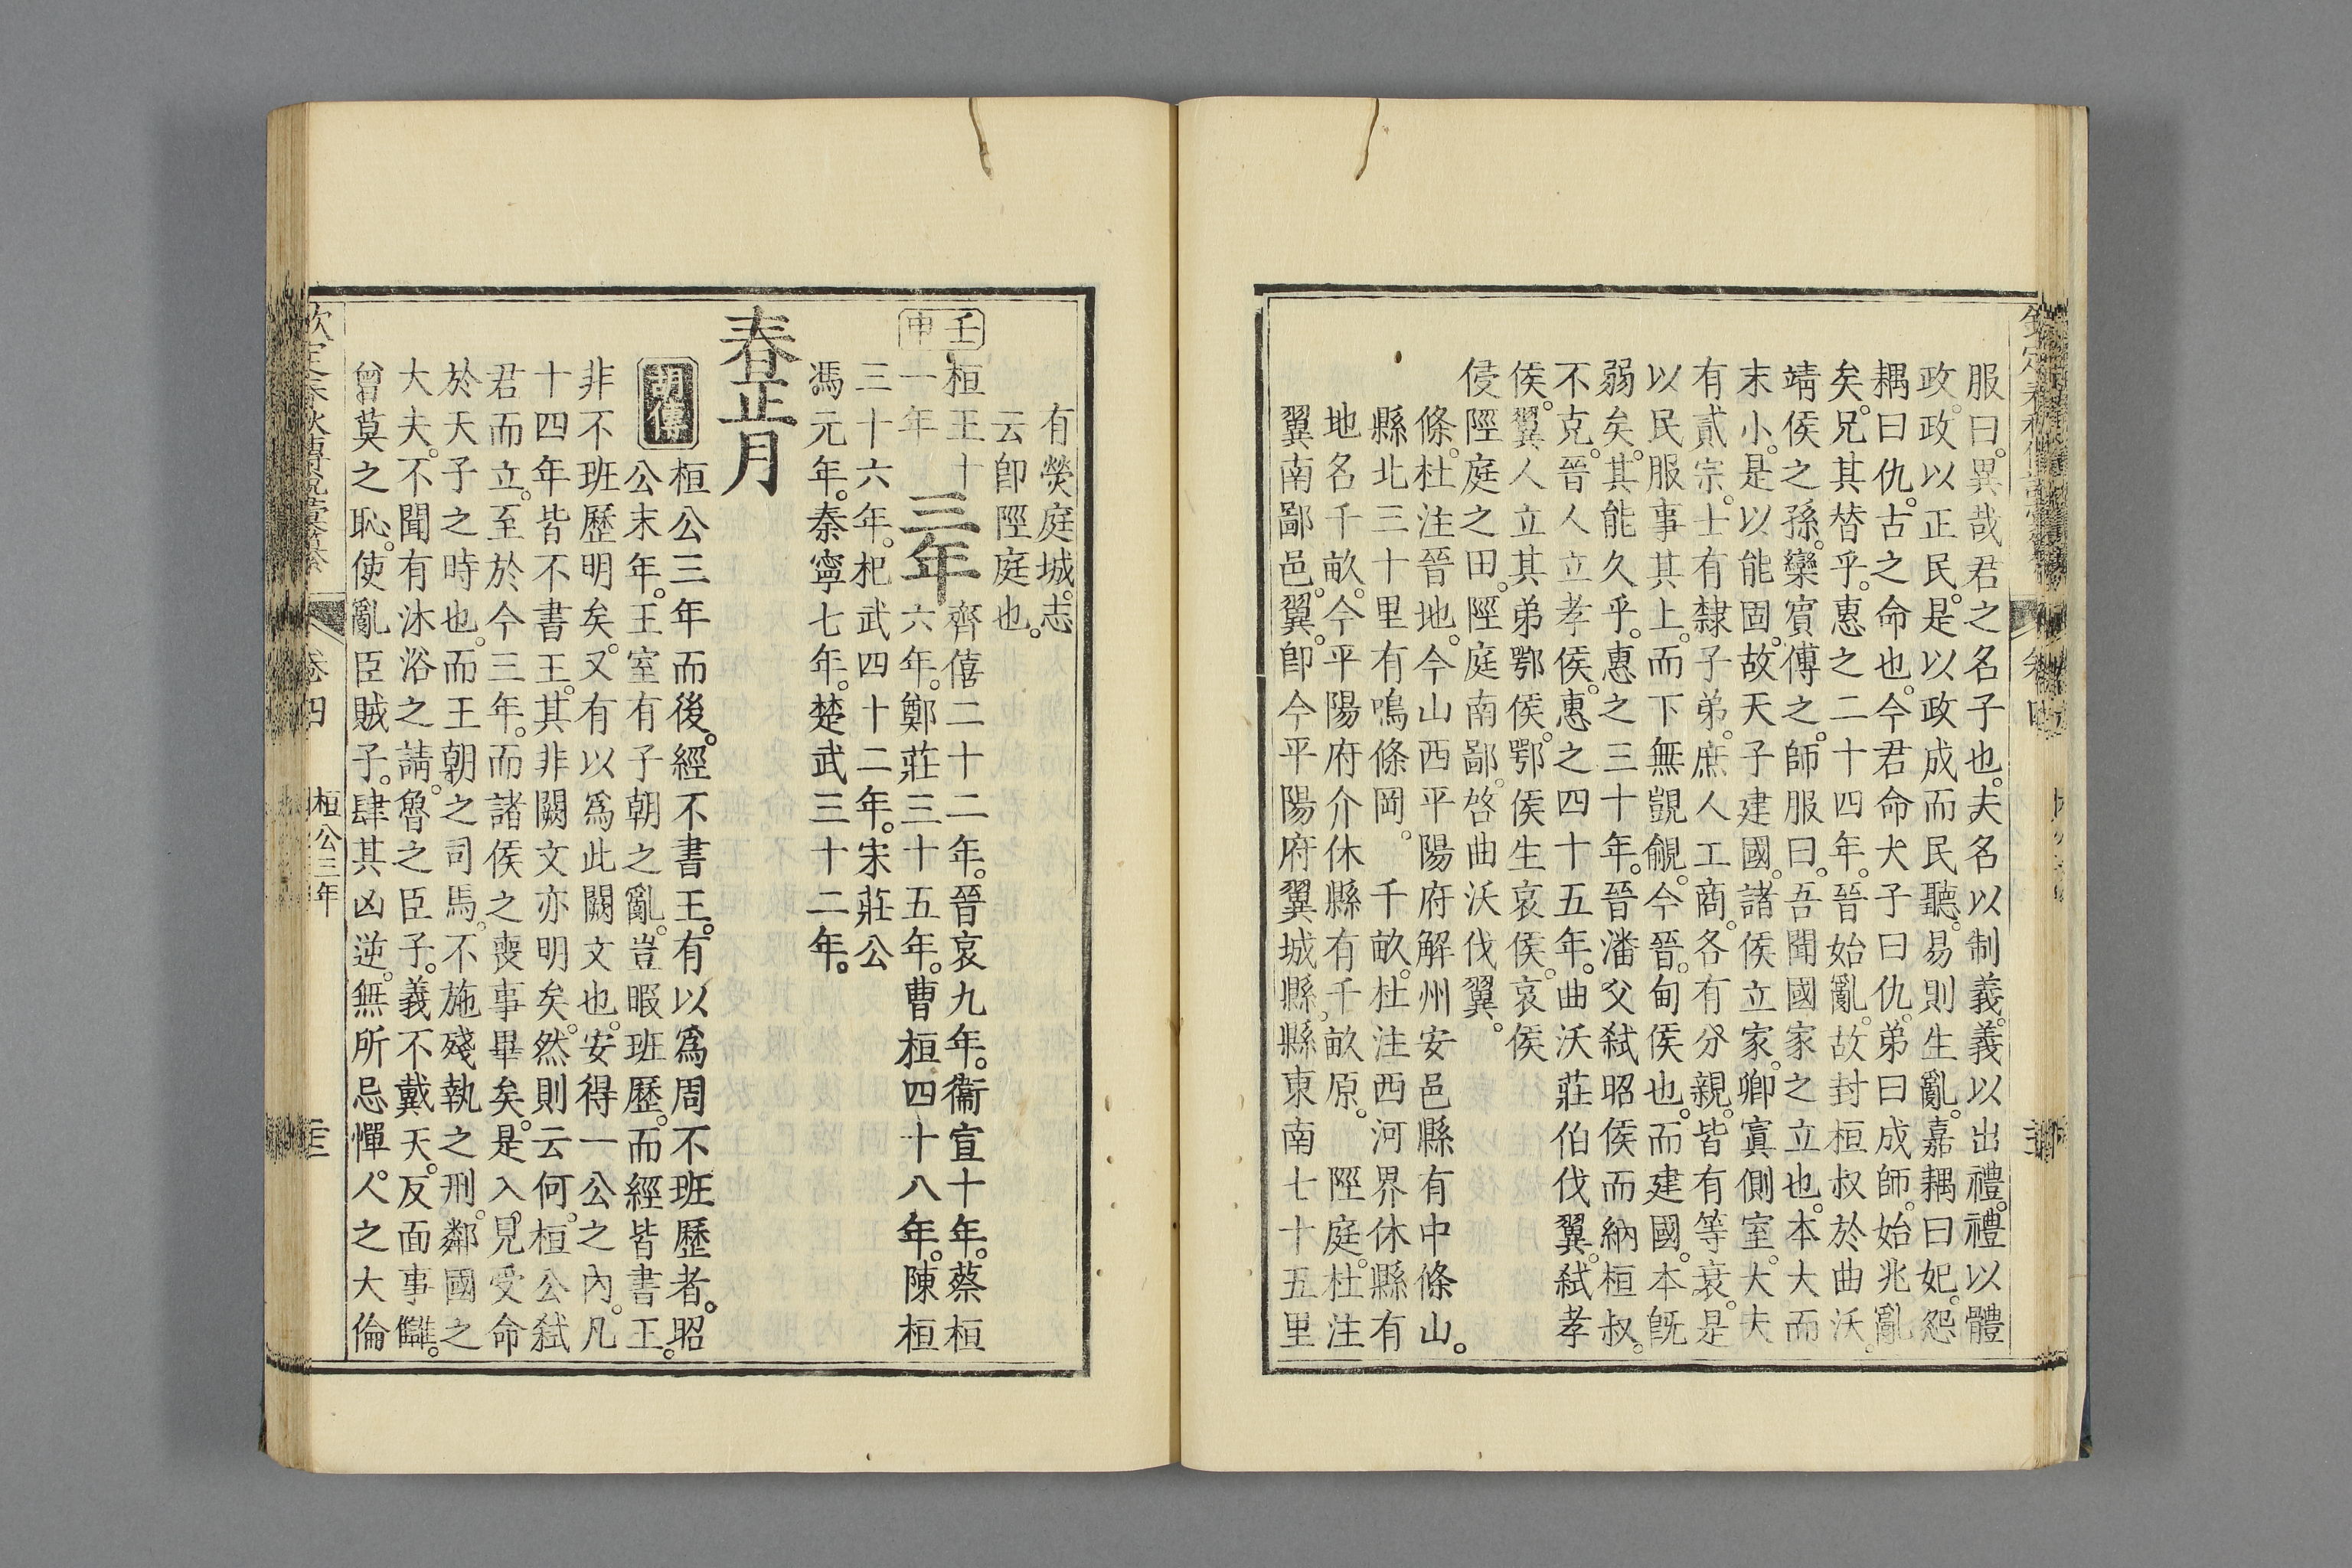 服曰。異哉君之名子也。夫名以制義。義以出禮。禮以體
政。政以正民。是以政成而民聽。易則生亂。嘉耦曰妃。怨
耦曰仇。古之命也。今君命大子曰仇。弟曰成師。始兆亂
矣。兄其替乎。惠之二十四年。晉始亂。故封桓叔於曲沃。
靖侯之孫。欒賓傅之。師服曰。吾聞國家之立也。本大而
末小。是以能固。故天子建國。諸侯立家。卿寘側室。大夫
有貳宗。士有隸子弟。庶人工商。各有分親。皆有等衰。是
以民服事其上。而下無覬覦。今晉。甸侯也。而建國。本旣
弱矣。其能久乎。惠之三十年。晉潘父弑昭侯而納桓叔。
不克。晉人立孝侯。惠之四十五年。曲沃莊伯伐翼。弑孝
侯。翼人立其弟鄂侯。鄂侯生哀侯。哀侯
侵陘庭之田。陘庭南鄙。啓曲沃伐翼。
條。杜注晉地。今山西平陽府解州安邑縣有中條山。
縣北三十里有鳴條岡。 千畝。杜注西河界休縣有
地名千畝。今平陽府介休縣有千畝原。 陘庭。杜注
翼南鄙邑。翼。卽今平陽府翼城縣。縣東南七十五里
有熒庭城。志
云卽陘庭也。
壬申
桓王十一年
三年
齊僖二十二年。晉哀九年。衞宣十年。蔡桓
六年。鄭莊三十五年。曹桓四十八年。陳桓
三十六年。杞武四十二年。宋莊公
馮元年。秦寧七年。楚武三十二年。
春正月
胡傳
桓公三年而後。經不書王。有以爲周不班歷者。昭
公末年。王室有子朝之亂。豈暇班歷。而經皆書王。
非不班歷明矣。又有以爲此闕文也。安得一公之內。凡
十四年皆不書王。其非闕文亦明矣。然則云何。桓公弑
君而立。至於今三年。而諸侯之喪事畢矣。是入見受命
於天子之時也。而王朝之司馬。不施殘執之刑。鄰國之
大夫。不聞有沐浴之請。魯之臣子。義不戴天。反面事讎。
曾莫之恥。使亂臣賊子。肆其凶逆。無所忌憚。人之大倫
卷四
桓公三年